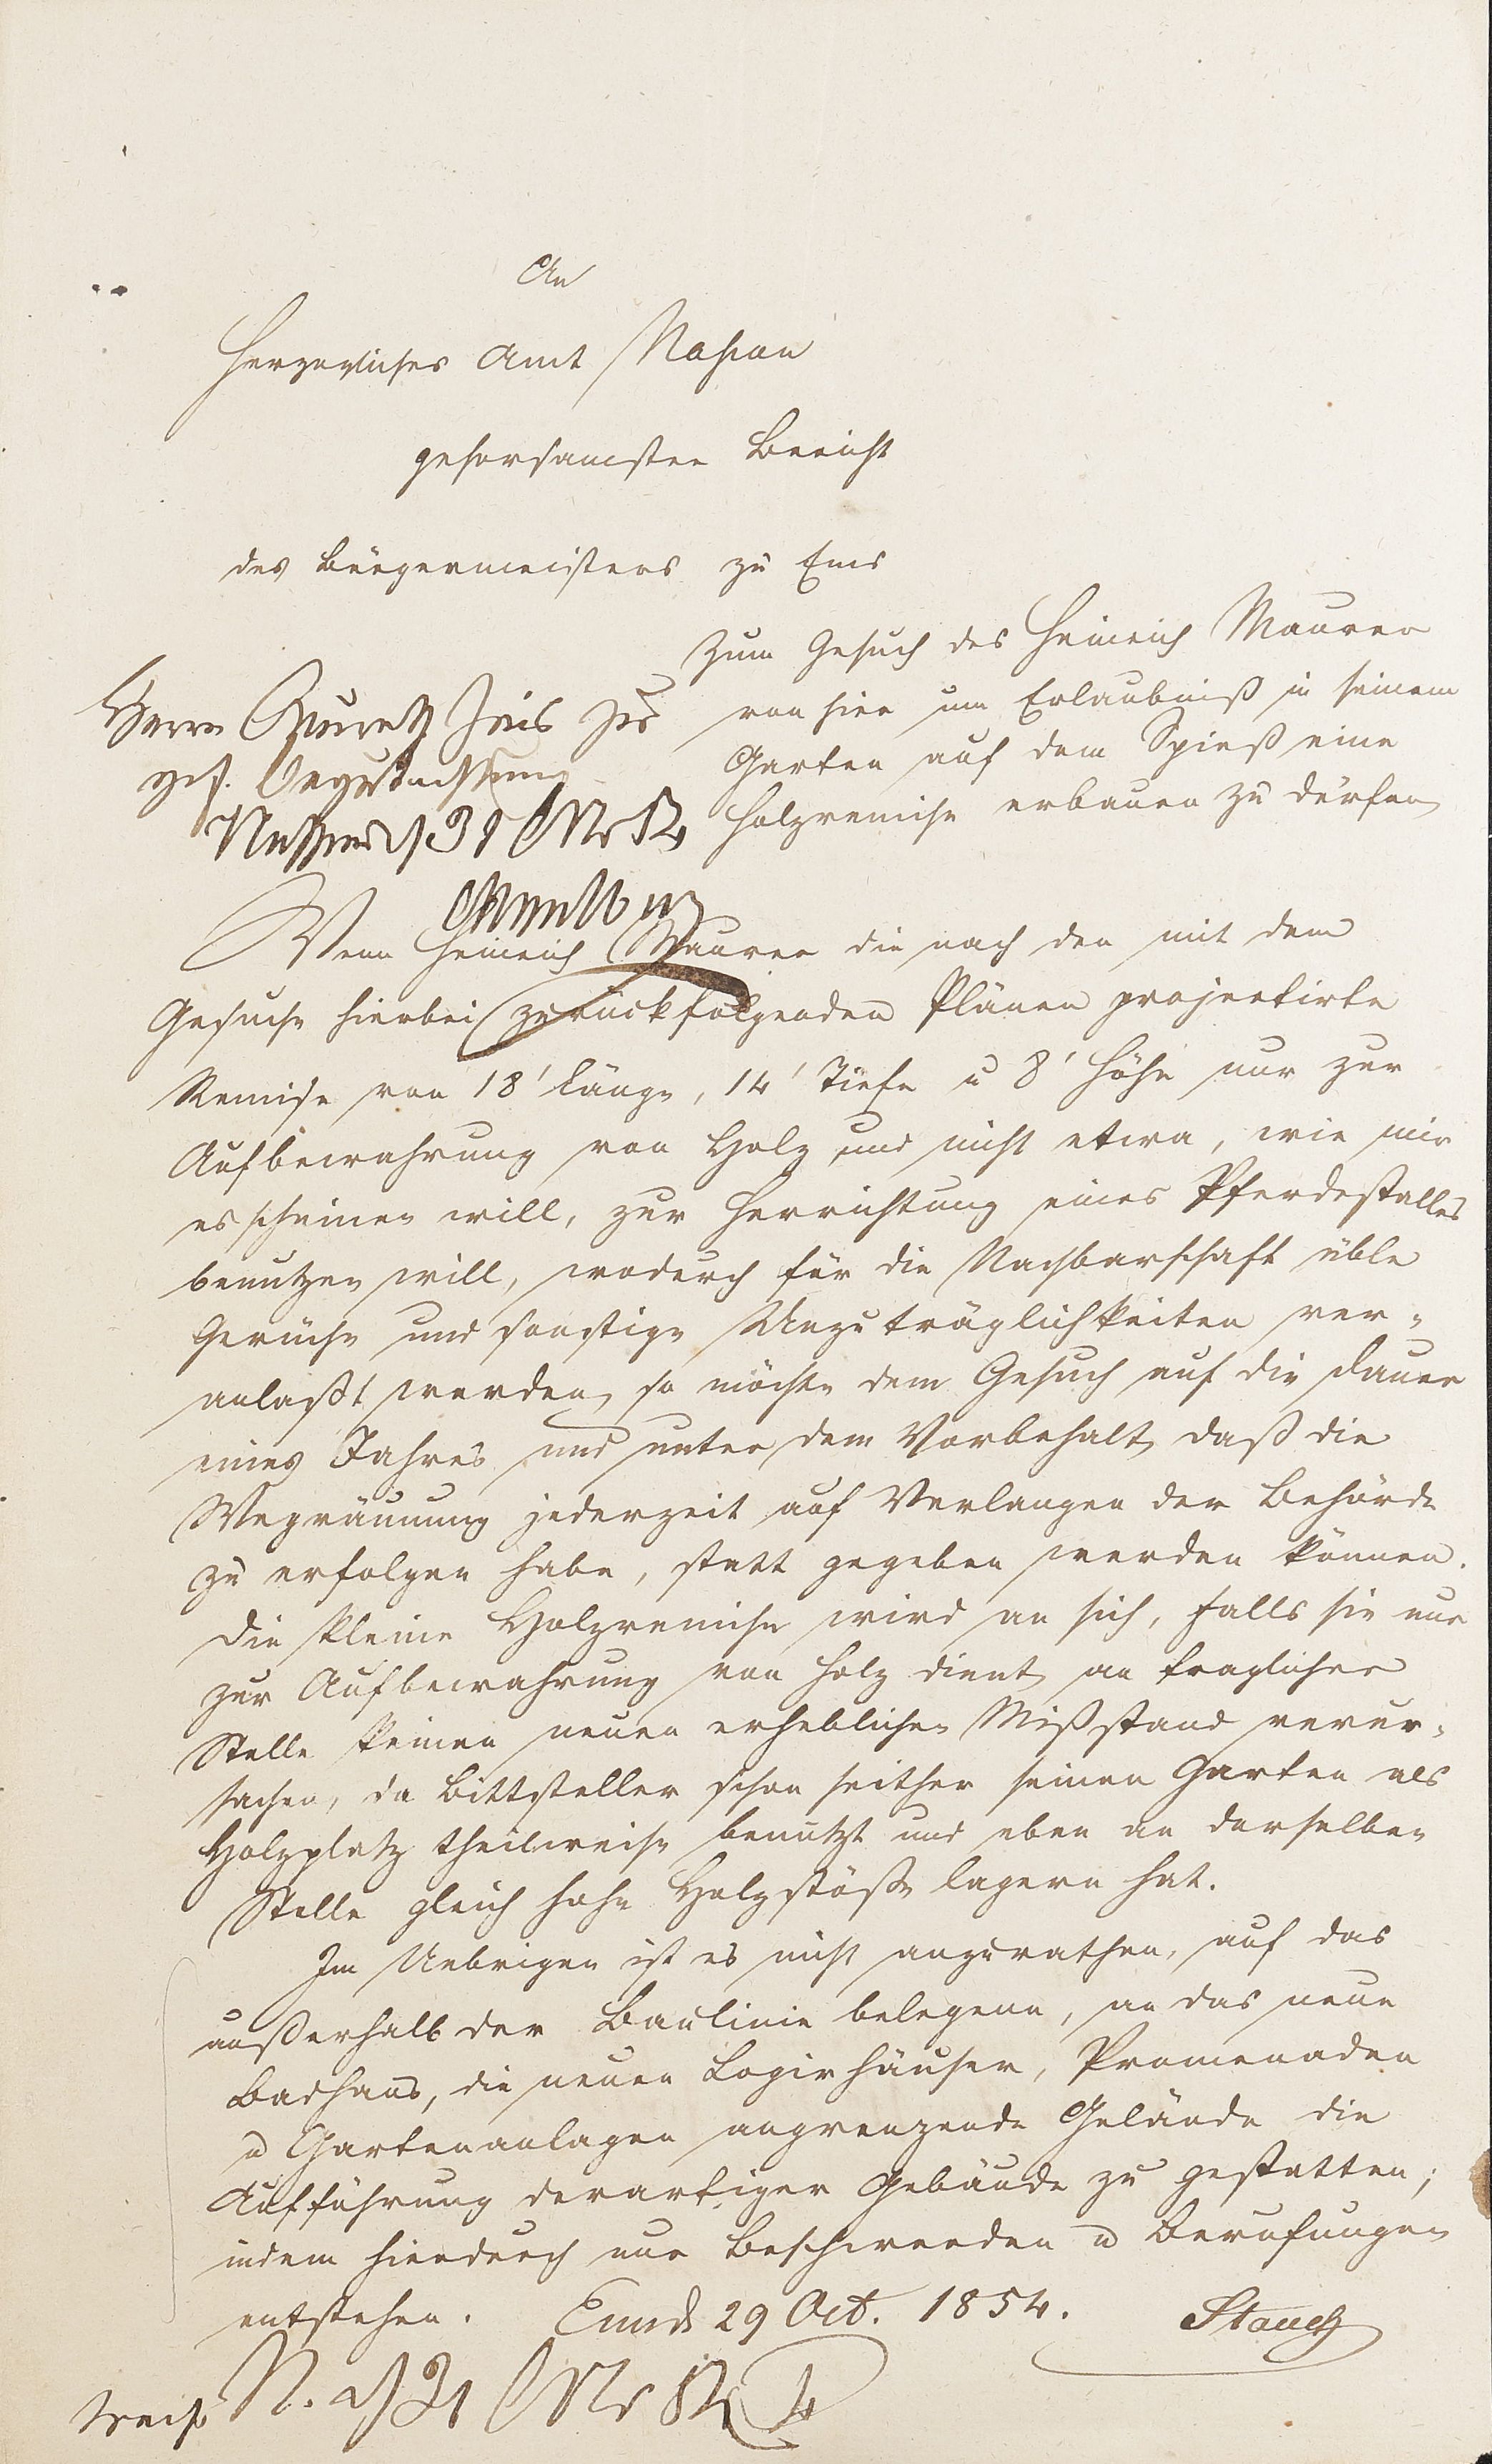 An
Herzogliches Amt Nassau
gehorsamster Bericht
des Bürgermeisters zu Ems
Zum Gesuch des Heinrich Maurer
von hier um Erlaubniß in seinem
Garten auf dem Spieß eine
Holzremise erbauen zu dürfen
Herrn zur
gef. Begutachtung
Nassau d 31 Oct 54
Wenn Heinrich Maurer die nach den mit dem
Gesuche hierbei zurückfolgenden Plänen projectirte
Remise von 18' Länge, 14' Tiefe u 8' Höhe nur zur
Aufbewahrung von Holz und nicht etwa, wie mir
es scheinen will, zur Herrichtung eines Pferdestalles
benutzen will, wodurch für die Nachbarschaft üble
Gerüche und sonstige Unzuträglichkeiten ver-
anlaßt werden, so möchte dem Gesuch auf die Dauer
eines Jahres und unter dem Vorbehalt, daß die
Wegräumung jederzeit auf Verlangen der Behörde
zu erfolgen habe, statt gegeben werden können.
Die kleine Holzremise wird an sich, falls sie nur
zur Aufbewahrung von Holz dient, an fraglicher
Stelle keinen neuen erheblichen Mißstand verur-
sachen, da Bittsteller schon seither seinen Garten als
Holzplatz theilweise benutzt und eben an derselben
Stelle gleich hohe Holzstöße lagern hat.
Im Uebrigen ist es nicht anzurathen, auf das
außerhalb der Baulinie belegene, an das neue
Badhaus, die neuen Logirhäuser, Promenaden
u Gartenanlagen angrenzende Gelände die
Aufführung derartiger Gebäude zu gestatten;
indem hierdurch nur Beschwerden u Berufungen
entstehen. Ems d 29 Oct. 1854.
Stauch
N. d 31 Oct 54